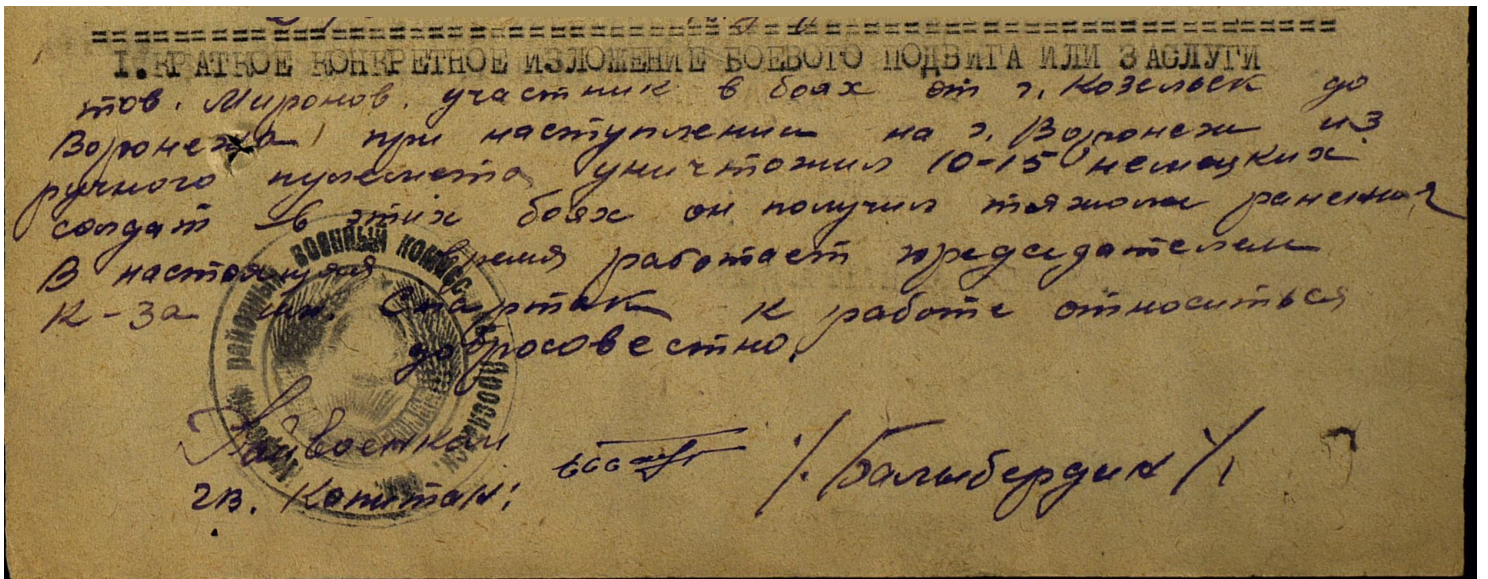 I. КРАТКОЕ КОНКРЕТНОЕ ИЗЛОЖЕНИЕ БОЕВОГО ПОДВИГА ИЛИ ЗАСЛУГИ
тов. Миронов. участник в боях от г. Козельск до
Воронежа при наступлении на г. Воронеж из
ручного пулемета уничтожил 10-15 немецких
солдат в этих боях он получил тяжолы раненния
В настоящуя время работает председателем
к-за им. Спартак к работе относиться
добросовестно.
районный ВОЕННЫЙ КОМИСС
Райвоенком
гв. Капитан: /. Балыбердин /.